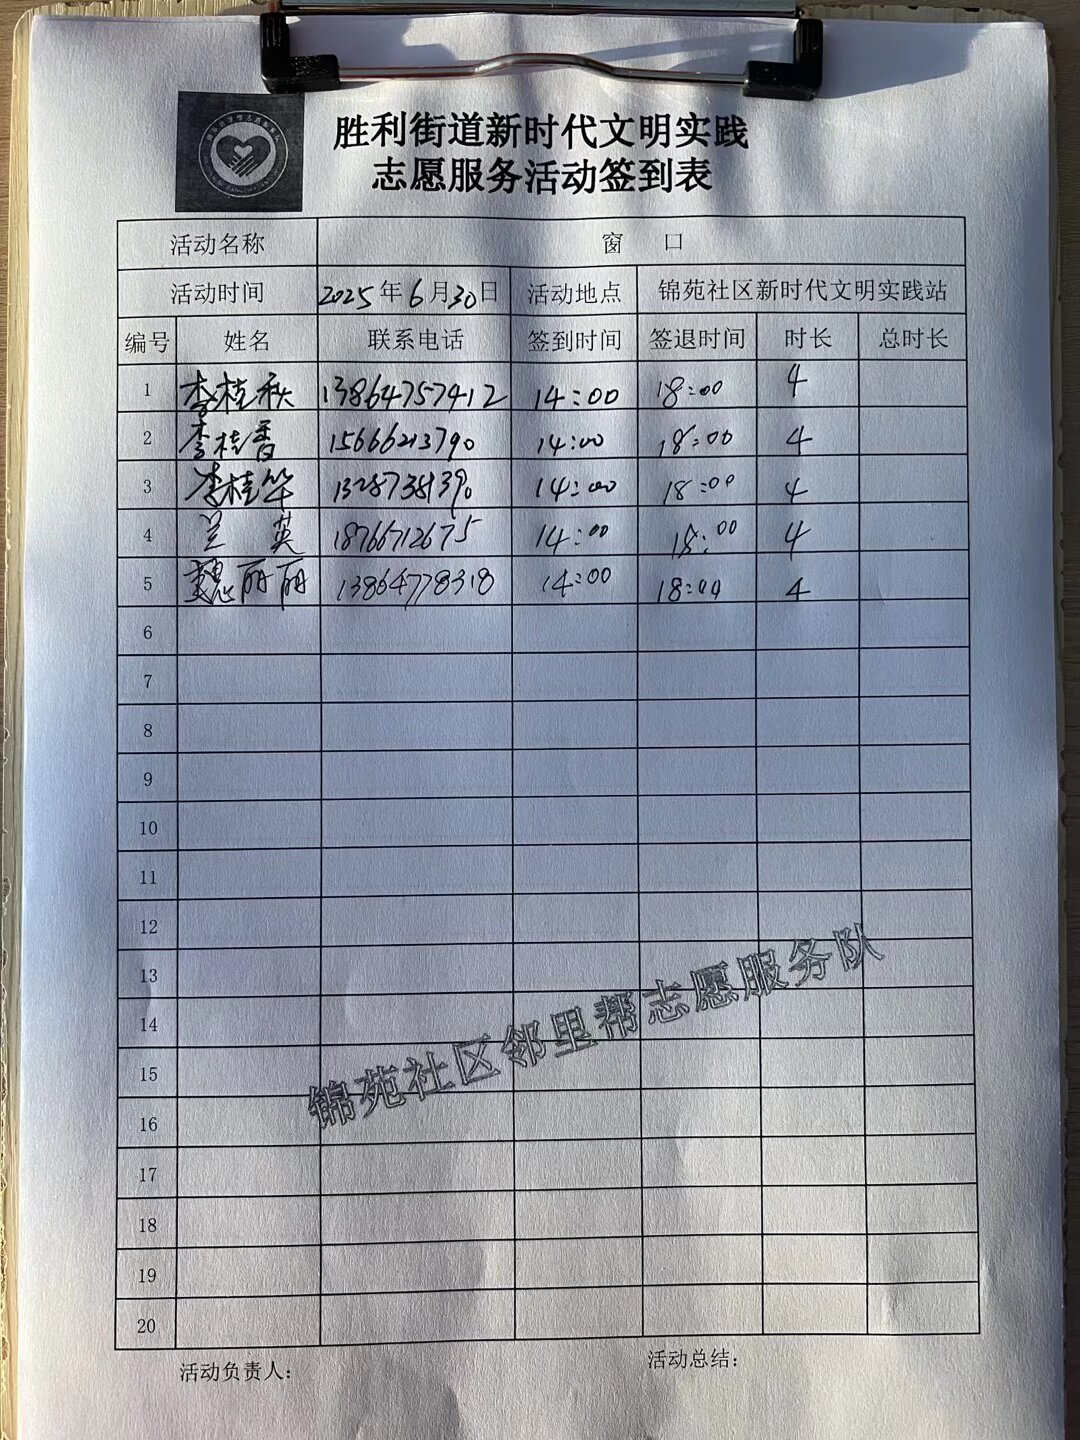 胜利街道新时代文明实践
志愿服务活动签到表
活动名称 窗 口
活动时间 2025年6月30日 活动地点 锦苑社区新时代文明实践站
编号 姓名 联系电话 签到时间 签退时间 时长 总时长
1 李桂秋 13864757412 14:00 18:00 4
2 李桂香 15666213790 14:00 18:00 4
3 李桂华 13287381390 14:00 18:00 4
4 兰 英 18766712675 14:00 18:00 4
5 魏丽丽 13864778318 14:00 18:00 4
6
7
8
9
10
11
12
13
14
15
16
17
18
19
20
锦苑社区邻里帮志愿服务队
活动负责人: 活动总结: